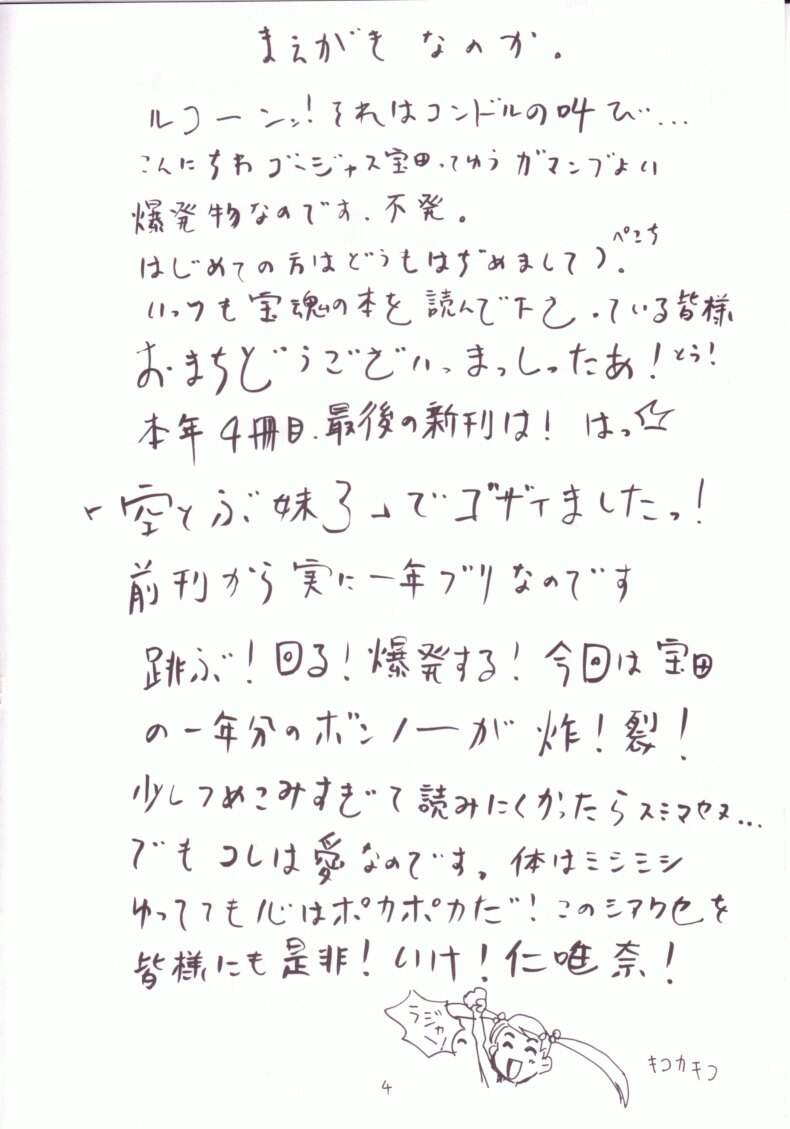 まえがきなのか。
ルコーンッ!それはコンドルの叫び…
こんにちわ ゴージャス宝田ってゆうガマンヅよい
爆発物なのです、不発。
はじめての方はどうもはぢめまして)。ぺこち
いっつも宝魂の本を読んで下さっている皆様
おまちどうございまっしったあ!とう!
本年4冊目、最後の新刊は!はっ☆
「空とぶ妹3」でゴザイましたっ!
前刊から実に一年ブリなのです
跳ぶ!回る!爆発する!今回は宝田
の一年分のボンノーが炸!裂!
少しつめこみすぎて読みにくかったらスミマセヌ…
でもコレは愛なのです。体はミシミシ
ゆってても心はポカポカだ!このシアワセを
皆様にも是非!いけ!仁唯奈!
ラジャー!
キコカキコ
4